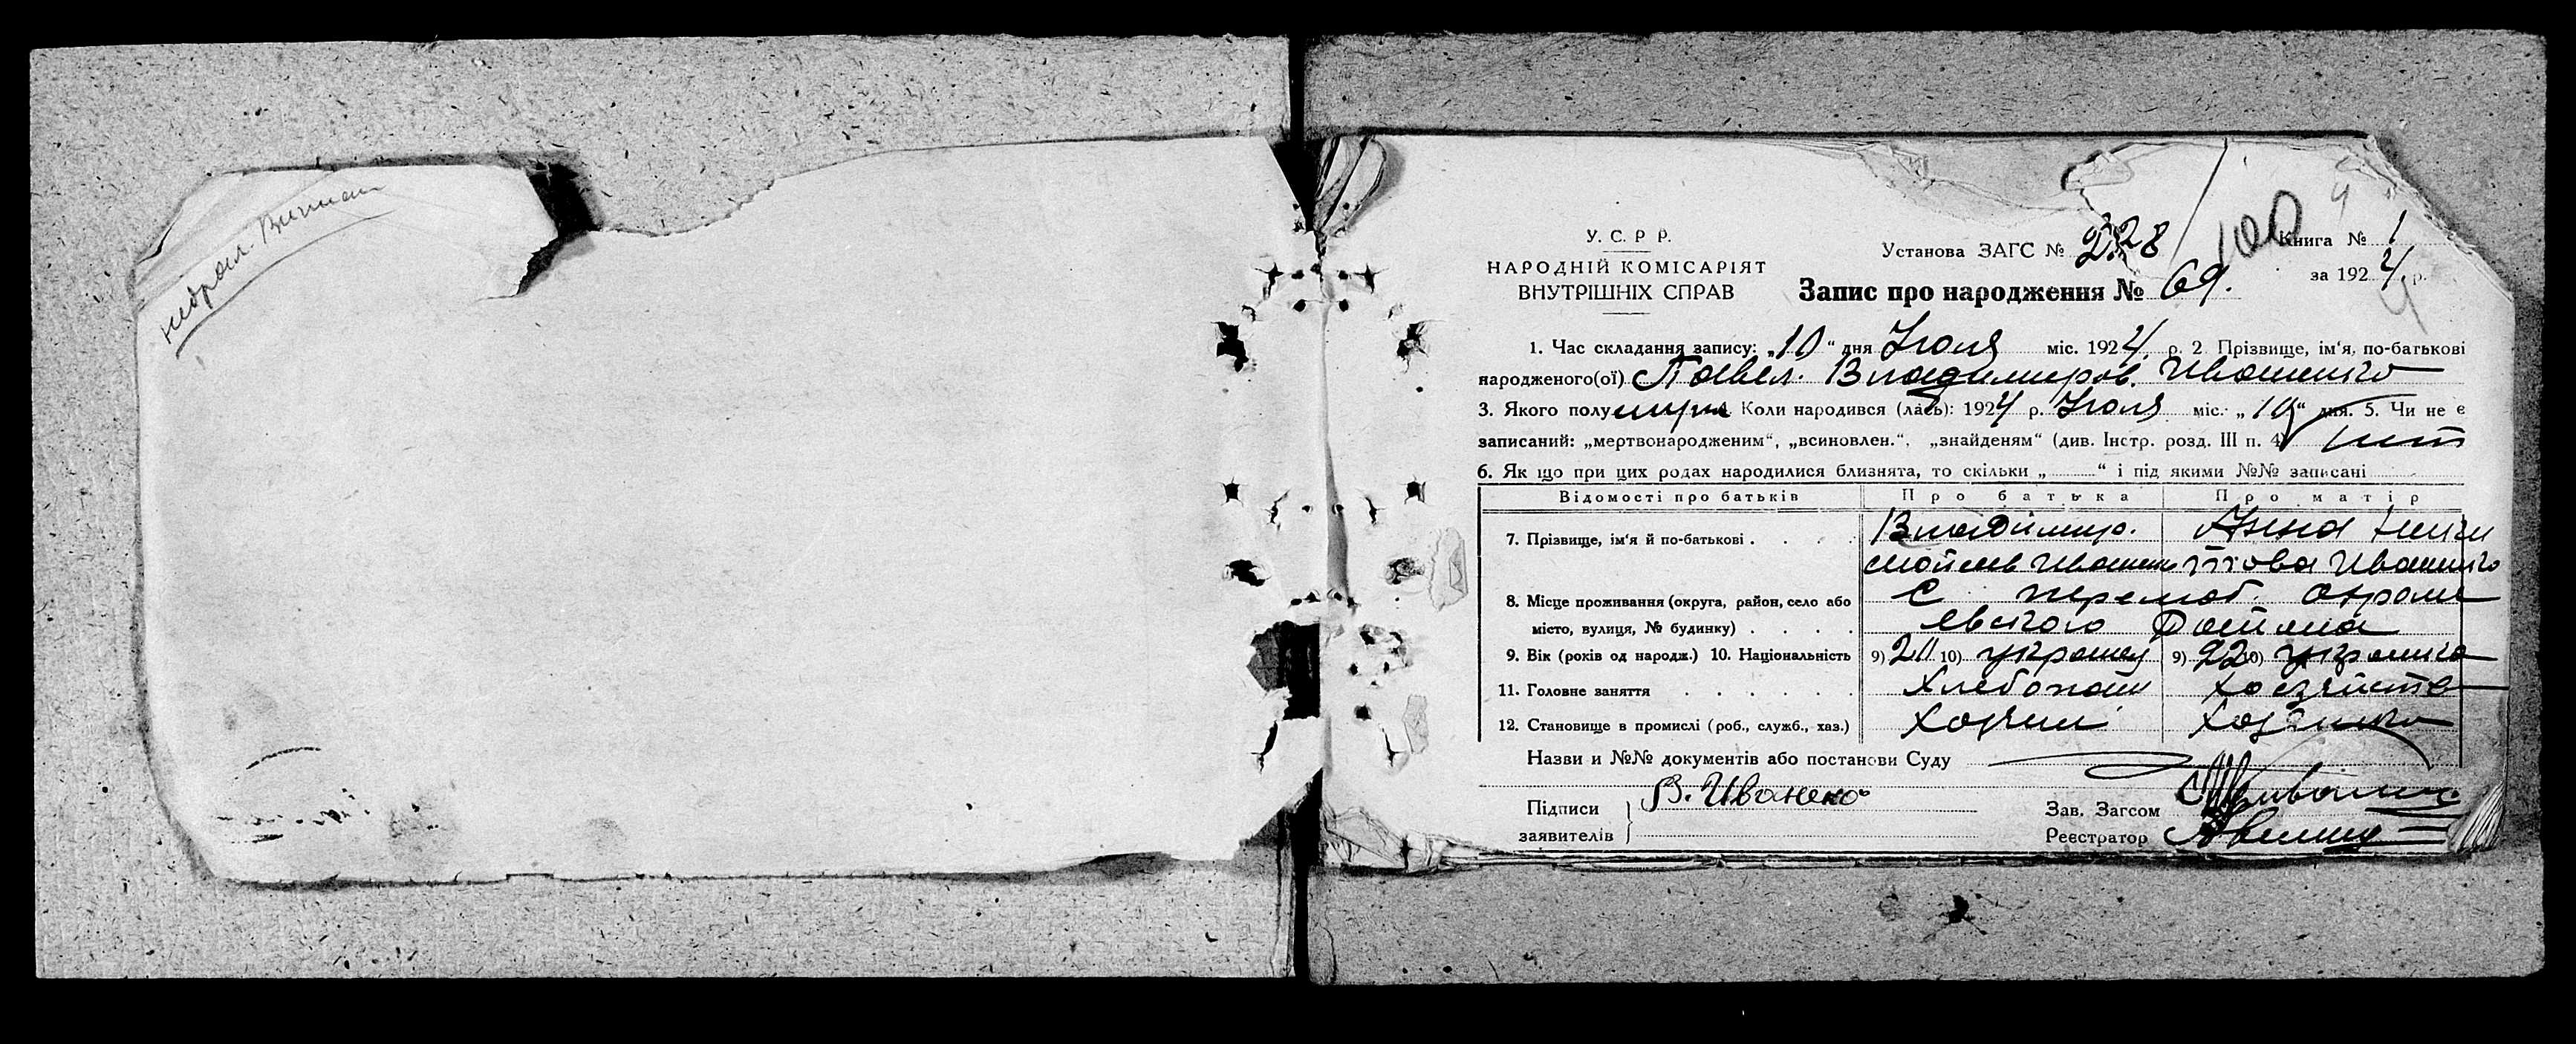 У. С. Р. Р.
НАРОДНІЙ КОМІСАРІЯТ
ВНУТРІШНІХ СПРАВ
Установа ЗАГС № 228
100
Книга № 1
за 1924 р.
Запис про народження № 69.
1. Час складання запису: „10“ дня Июля міс. 1924 р. 2 Прізвище, ім'я, по-батькові
народженого(ої) Павел. Владимиров. Ивашенко
3. Якого полу муж. Коли народився (лась): 1924 р. Июля міс. „10“ дня. 5. Чи не є
записаний: „мертвонародженим“, „всиновлен.“, „знайденям“ (див. Інстр. розд. III п. 4) нет
6. Як що при цих родах народилися близнята, то скільки „ “ і під якими №№ записані
Відомості про батьків Про батька Про матір
7. Прізвище, ім'я й по-батькові . . . . Владимир. Анна Ники
Ивашенко това Ивашенко
8. Місце проживання (округа, район, село або С
місто, вулиця, № будинку) . . . .
9. Вік (років од народж.) 10. Національність 9) 20 10) украинец 9) 22 10) украинка
11. Головне заняття . . . . . . Хлебопаш Хозяйство
12. Становище в промислі (роб., служб., хаз.) Хозяин Хозяйка
Назви и №№ документів або постанови Суду
Підписи В. Иваненко
заявителів
Зав. Загсом
Реєстратор